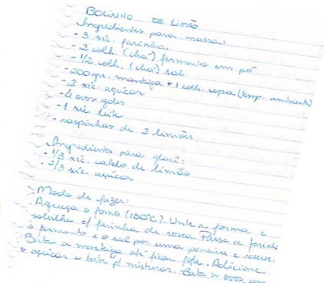 BOLINHO DE LIMÃO
Ingredientes para massa:
- 3 xíc. farinha
- 2 colh. (chá) fermento em pó
- 1/2 colh. (chá) sal
- 200grs. manteiga + 1 colh. sopa (temp. ambiente)
- 2 xíc. açúcar
- 4 ovos
- 1 xíc. leite
- raspinhas de 2 limões
Ingredientes para glacê:
- 1/3 xíc. caldo de limão
- 2/3 xíc. açúcar
Modo de fazer:
Aqueça o forno (180ºC). Unte a forma e
polvilhe c/ farinha de rosca. Passe a farinha
o fermento e o sal por uma peneira e reserve.
Bata a manteiga até ficar fofa. Adicione
o açúcar e bata p/ misturar. Bata os ovos um